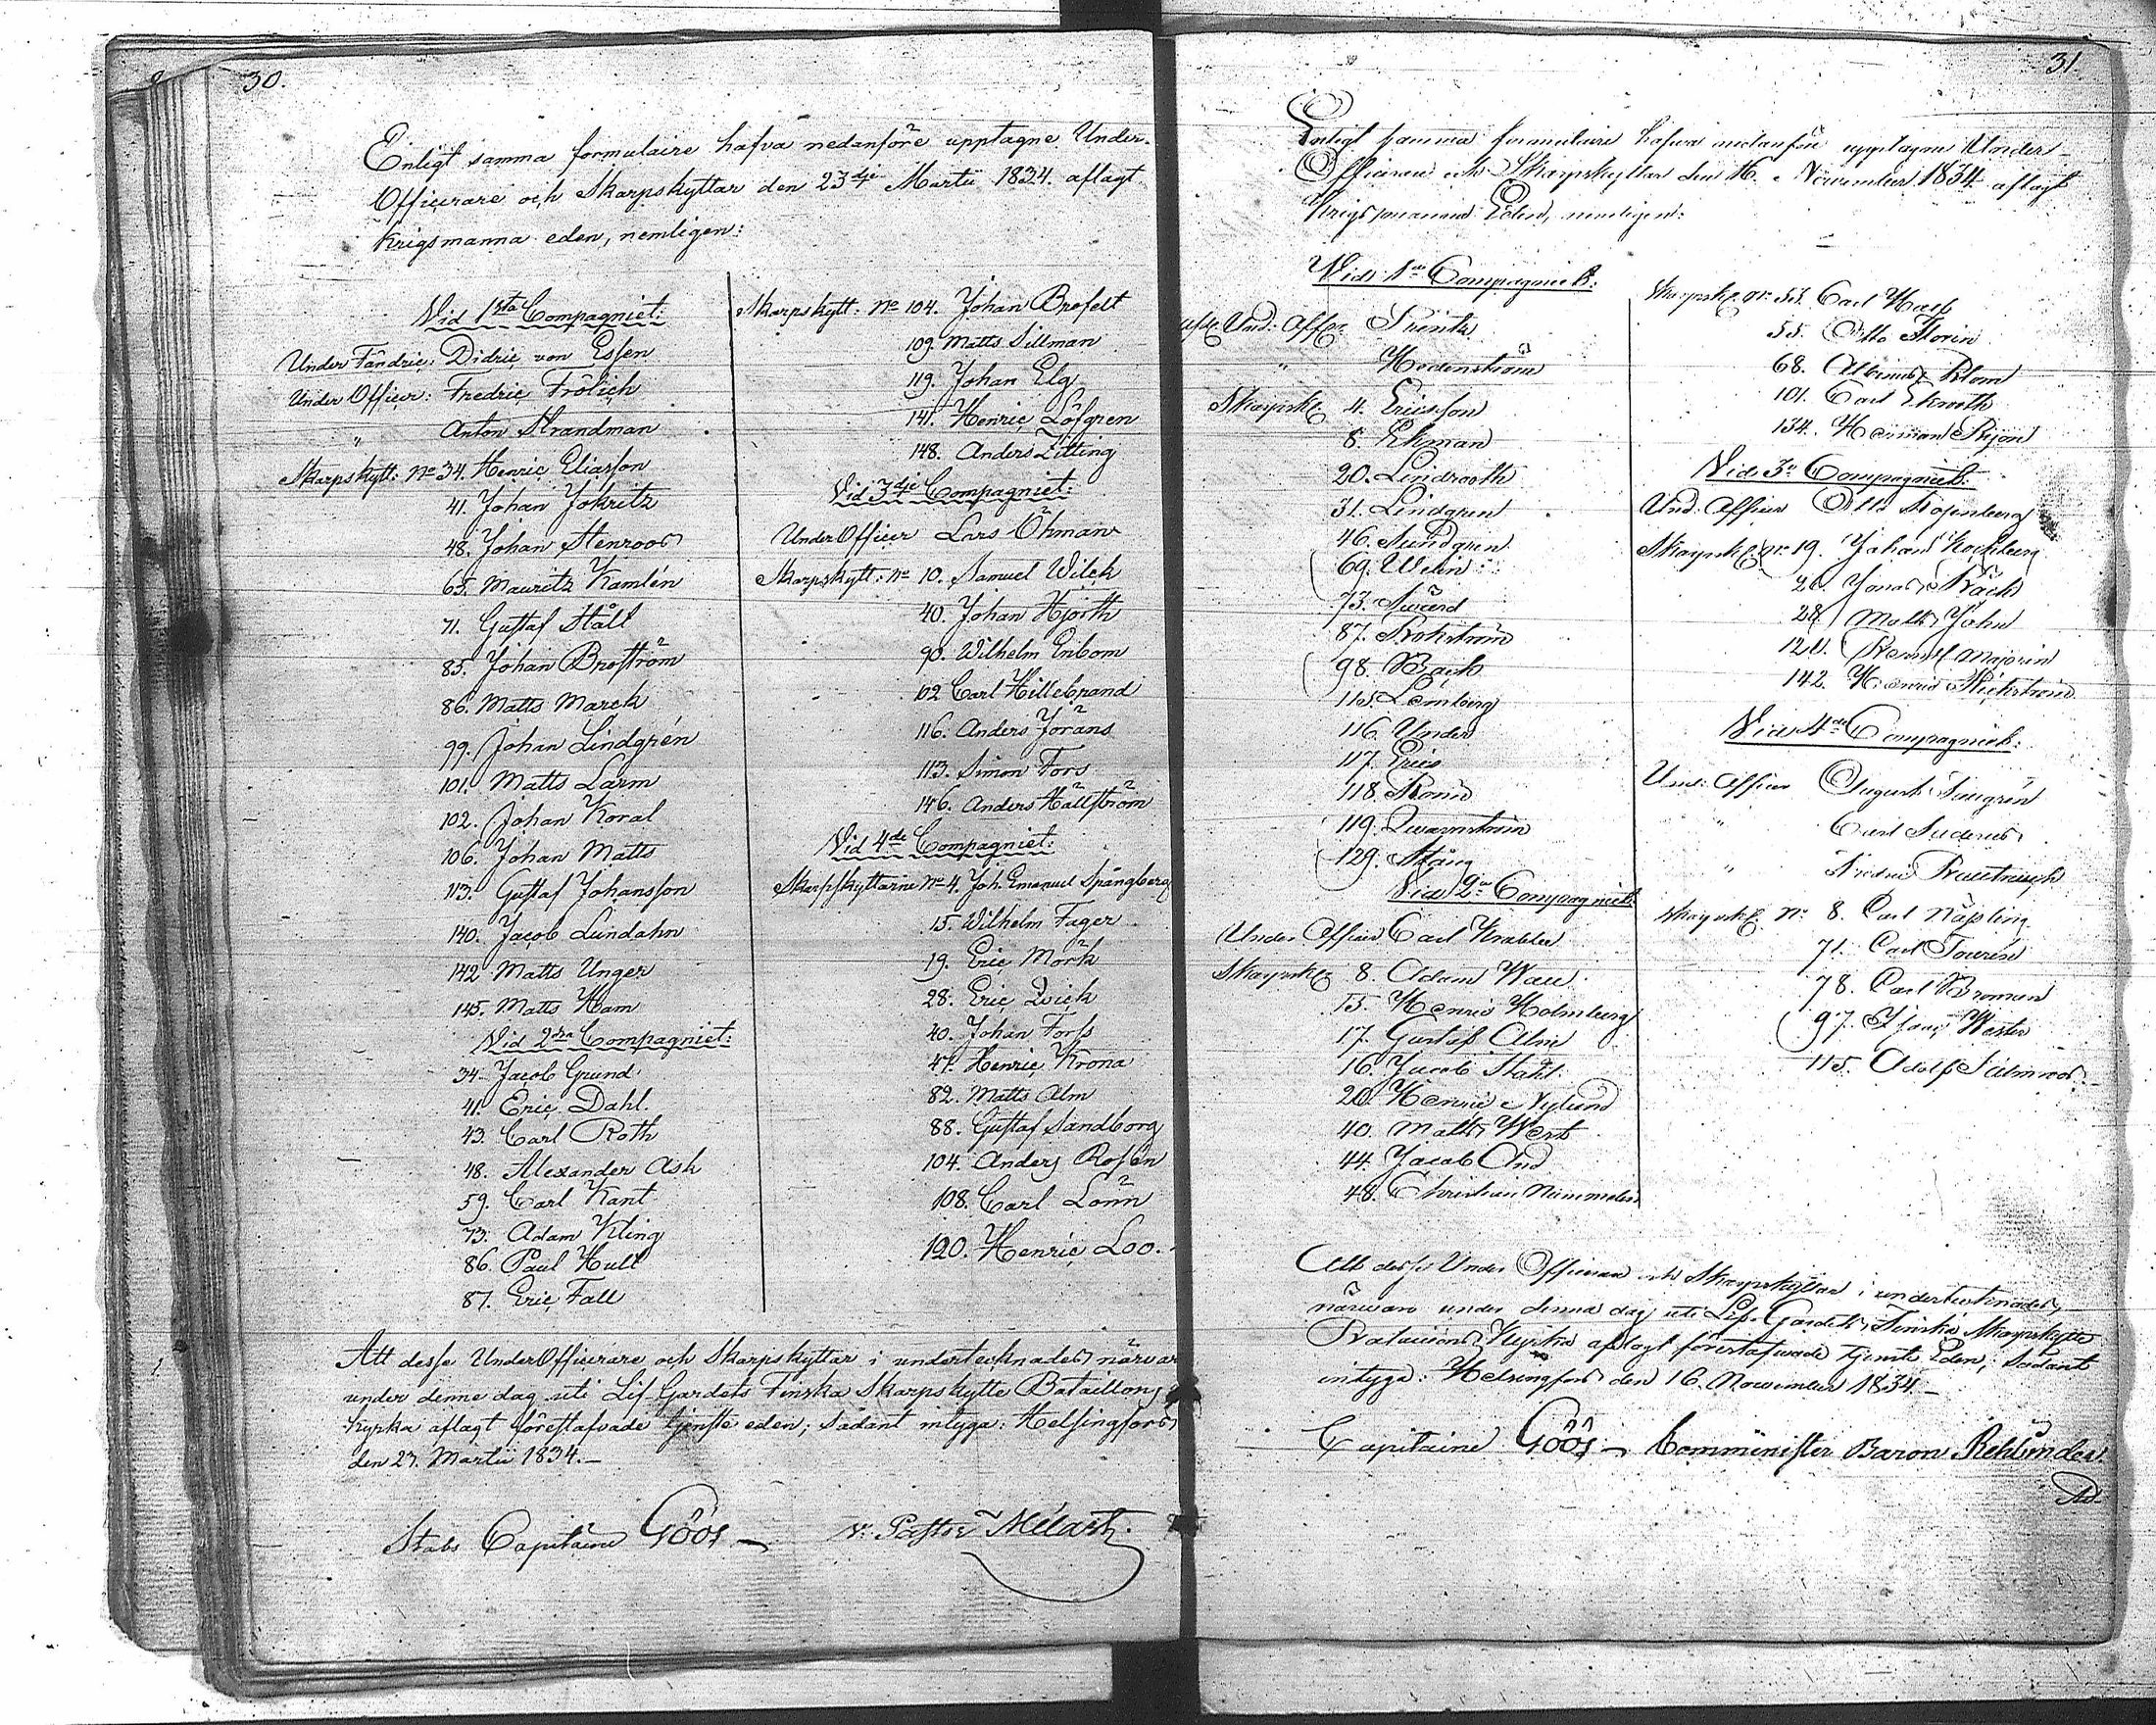 30.
Enligt samma formulaire hafva nedanföre upptagne Under-
Officerare och Skarpskyttar den 23dje Martii 1834. aflagt
Krigsmanna eden, nemligen:
Vid 1sta Compagniet:
Under Fändric: Didric von Essen
Under Officer: Fredric Frölich
" Anton Strandman
Skarpskytt: No 34. Henric Eliasson
41. Johan Jokritz
48. Johan Stenroos
65. Mauritz Kamlén
71. Gustaf Stålt
85. Johan Broström
86. Matts Marck
99. Johan Lindgrén
101. Matts Larm
102. Johan Koral
106. Johan Matts
113. Gustaf Johansson
140. Jacob Lundahn
142 Matts Unger
145. Matts Ham
Vid 2dra Compagniet:
34. Jacob Grund
41. Eric Dahl.
43. Carl Roth
48. Alexander Ask
59. Carl Kant
73. Adam Kling
86. Paul Hull
87. Eric Fall
Skarpskytt: No 104. Johan Brofelt
109. Matts Sillman
119. Johan Elg
141. Henric Löfgren
148. Anders Zitting
Vid 3dje Compagniet:
UnderOfficer Lars Öhman
Skarpskytt: No 10. Samuel Wilck
40. Johan Hjorth
90. Wilhelm Enbom
102 Carl Hillebrand
116. Anders Jöräns
113. Simon Fors
146. Anders Hällström
Vid 4de Compagniet:
Skarpskyttarne No 4. Joh. Emanuel Spångberg
15. Wilhelm Fager
19. Eric Mörk
28. Eric Qvick
40. Johan Forss
47. Henric Krona
82. Matts Alm
88. Gustaf Sandborg
104. Anders Rosén
108. Carl Lönn
120. Henric Loo.
Att desse UnderOfficerare och Skarpskyttar i undertecknades närvaro
under denne dag uti Lif Gardets Finska Skarpskytte Bataillons
kyrka aflagt förestafvade tjenste eden; sådant intyga: Helsingfors
den 23. Martii 1834.
Stabs Capitaine Göös V: Pastor Mélart.
31.
Enligt samma formulaire hafwa nedanföre upptagne Under
Officerare och Skarpskyttar den 16. November 1834 aflagt
Krigsmanna Eden, nemligen:
Vid 1sta Compagniet:
Und: Offr
Hedenström
Skarpsk: 4. Ericsson
8. Ekman
20. Lindrooth
31. Lindgren
46. Sundgren
69. Wenn
73. Swärd
87. Brohström
98. Bäck
115. Lemberg
116. Under
117. Eric
118.
119. Qwarnström
129. Stång
Vid 2a Compagniet
Under Officer Carl
Skarpsk: 8. Adam
15. Henric Holmberg
17. Gustaf Alm
16. Jacob Ståhl
20. Henric Nylund
40. Matts Wert
44. Jacob And
48. Christian Nummelin
Skarpsk: No 53. Carl
55. Otto Florin
68. Albinus Blom
101. Carl Ekroth
134. Herman
Vid 3e Compagniet:
Und: Officer Otto Rosenberg
Skarpsk: No 19. Johan Hochberg
20. Jonas Bäck
28. Matts John
120. Majorin
142. Henric
Vid 4de Compagniet:
Und: Officer August
" Carl
" Fredric
Skarpsk: No 8. Carl Nässling
71. Carl Tourén
78. Carl Broman
97. Wester
115. Adolf Salmroos
Att desse Under Officerare och Skarpskyttar i undertecknades
närwaro under denna dag uti Lif-Gardets Finska Skarpskytte
Bataillons Kyrka aflagt förestafwade tjenste Eden; Sådant
intyga: Helsingfors den 16. November 1834.
Capitaine Göös Comminister Baron Rehbinder.